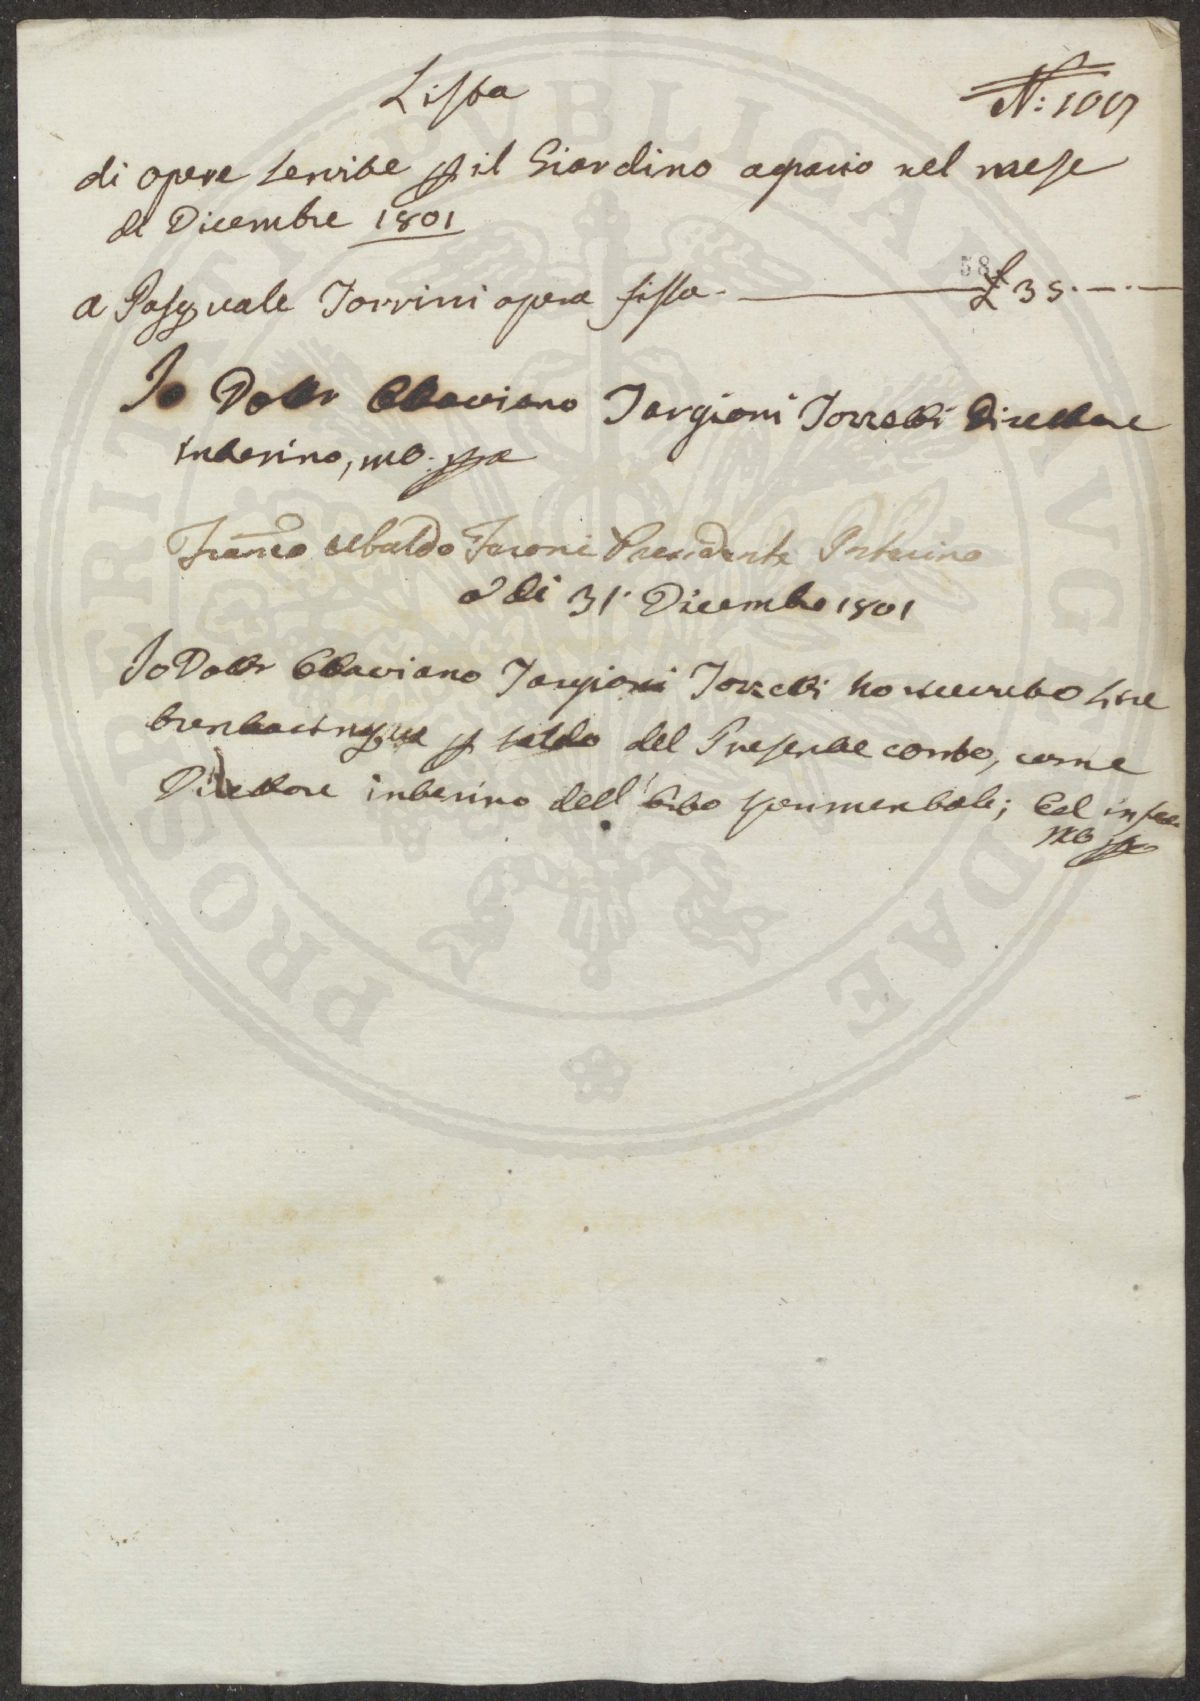 Lista
N: 1007
di opere servite p il Giardino agrario nel mese
di Dicembre 1801
58
a Pasquale Torrini opera fissa. £ 35.—.—
Io Dottr Ottaviano Targioni Tozzetti Direttore
interino, mo. ppa
Franco Ubaldo Feroni Presidente Interino
a di 31 Dicembre 1801
Io Dottr Ottaviano Targioni Tozzetti ho ricevuto Lire
trentacinque p saldo del Presente conto, come
Direttore interino dell'Orto sperimentale; Ed in fede
mo ppa
PROSPERITATI PUBLICAE AUGENDAE